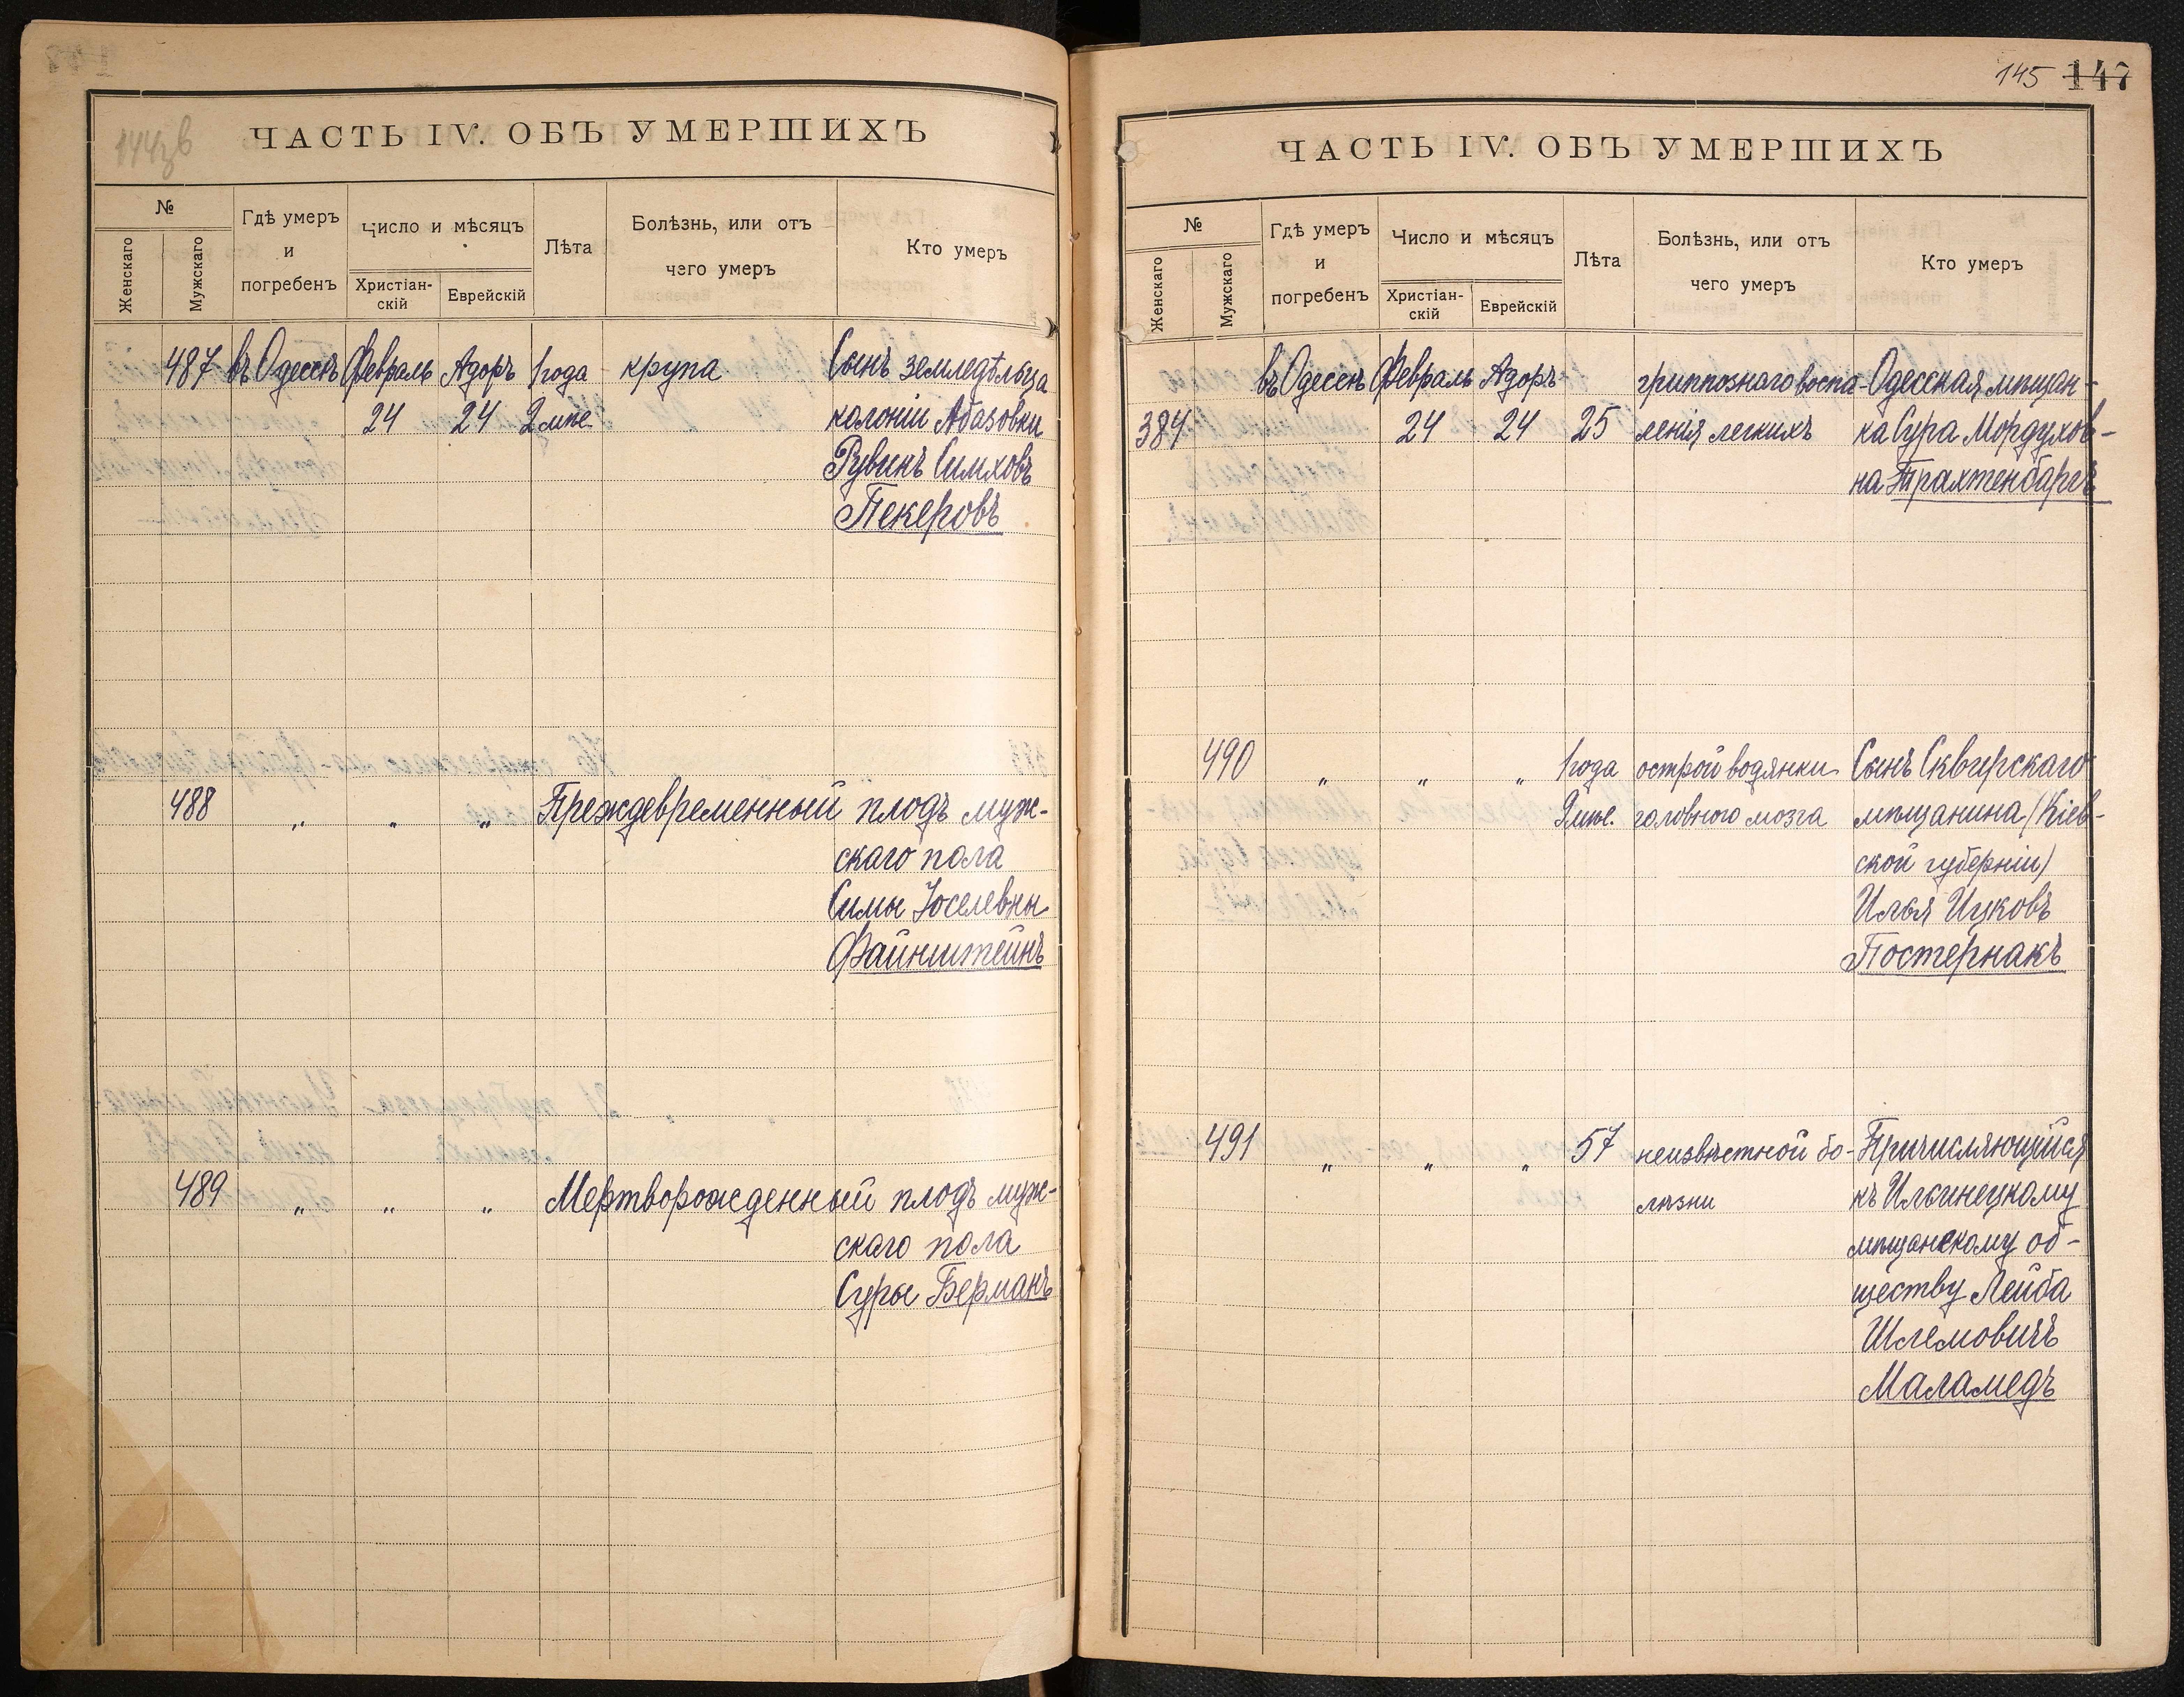 144зв
ЧАСТЬ IV. ОБЪ УМЕРШИХЪ
№
Женскаго
Мужскаго
Гдѣ умеръ
и
погребенъ
Число и мѣсяцъ
Христіан-
скій
Еврейскій
Лѣта
Болѣзнь, или отъ
чего умеръ
Кто умеръ
487 въ Одессѣ Февраль Адоръ 1 года крупа Сынъ земледѣльца
24 24 2 мѣс. колоніи Абазовки
Рувинъ Симховъ
Пекеровъ
488 " " " Преждевременный плодъ муж-
скаго пола
Симы Іоселевны
Файнштейнъ
489 " " " Мертворожденный плодъ муж-
скаго пола
Суры Берманъ
145 147
ЧАСТЬ IV. ОБЪ УМЕРШИХЪ
№
Женскаго
Мужскаго
Гдѣ умеръ
и
погребенъ
Число и мѣсяцъ
Христіан-
скій
Еврейскій
Лѣта
Болѣзнь, или отъ
чего умеръ
Кто умеръ
въ Одессѣ Февраль Адоръ гриппознаго воспа- Одесская мѣщан-
384 24 24 25 ленія легкихъ ка Сура Мордухов-
на Трахтенбаргъ
490 " " " 1 года острой водянки Сынъ Сквирскаго
9 мѣс. головного мозга мѣщанина (Кіев-
ской губерніи)
Илья Ицковъ
Постернакъ
491 " " " 57 неизвѣстной бо- Причисляющійся
лѣзни къ Ильинецкому
мѣщанскому об-
ществу Лейба
Шлемовичъ
Маламедъ